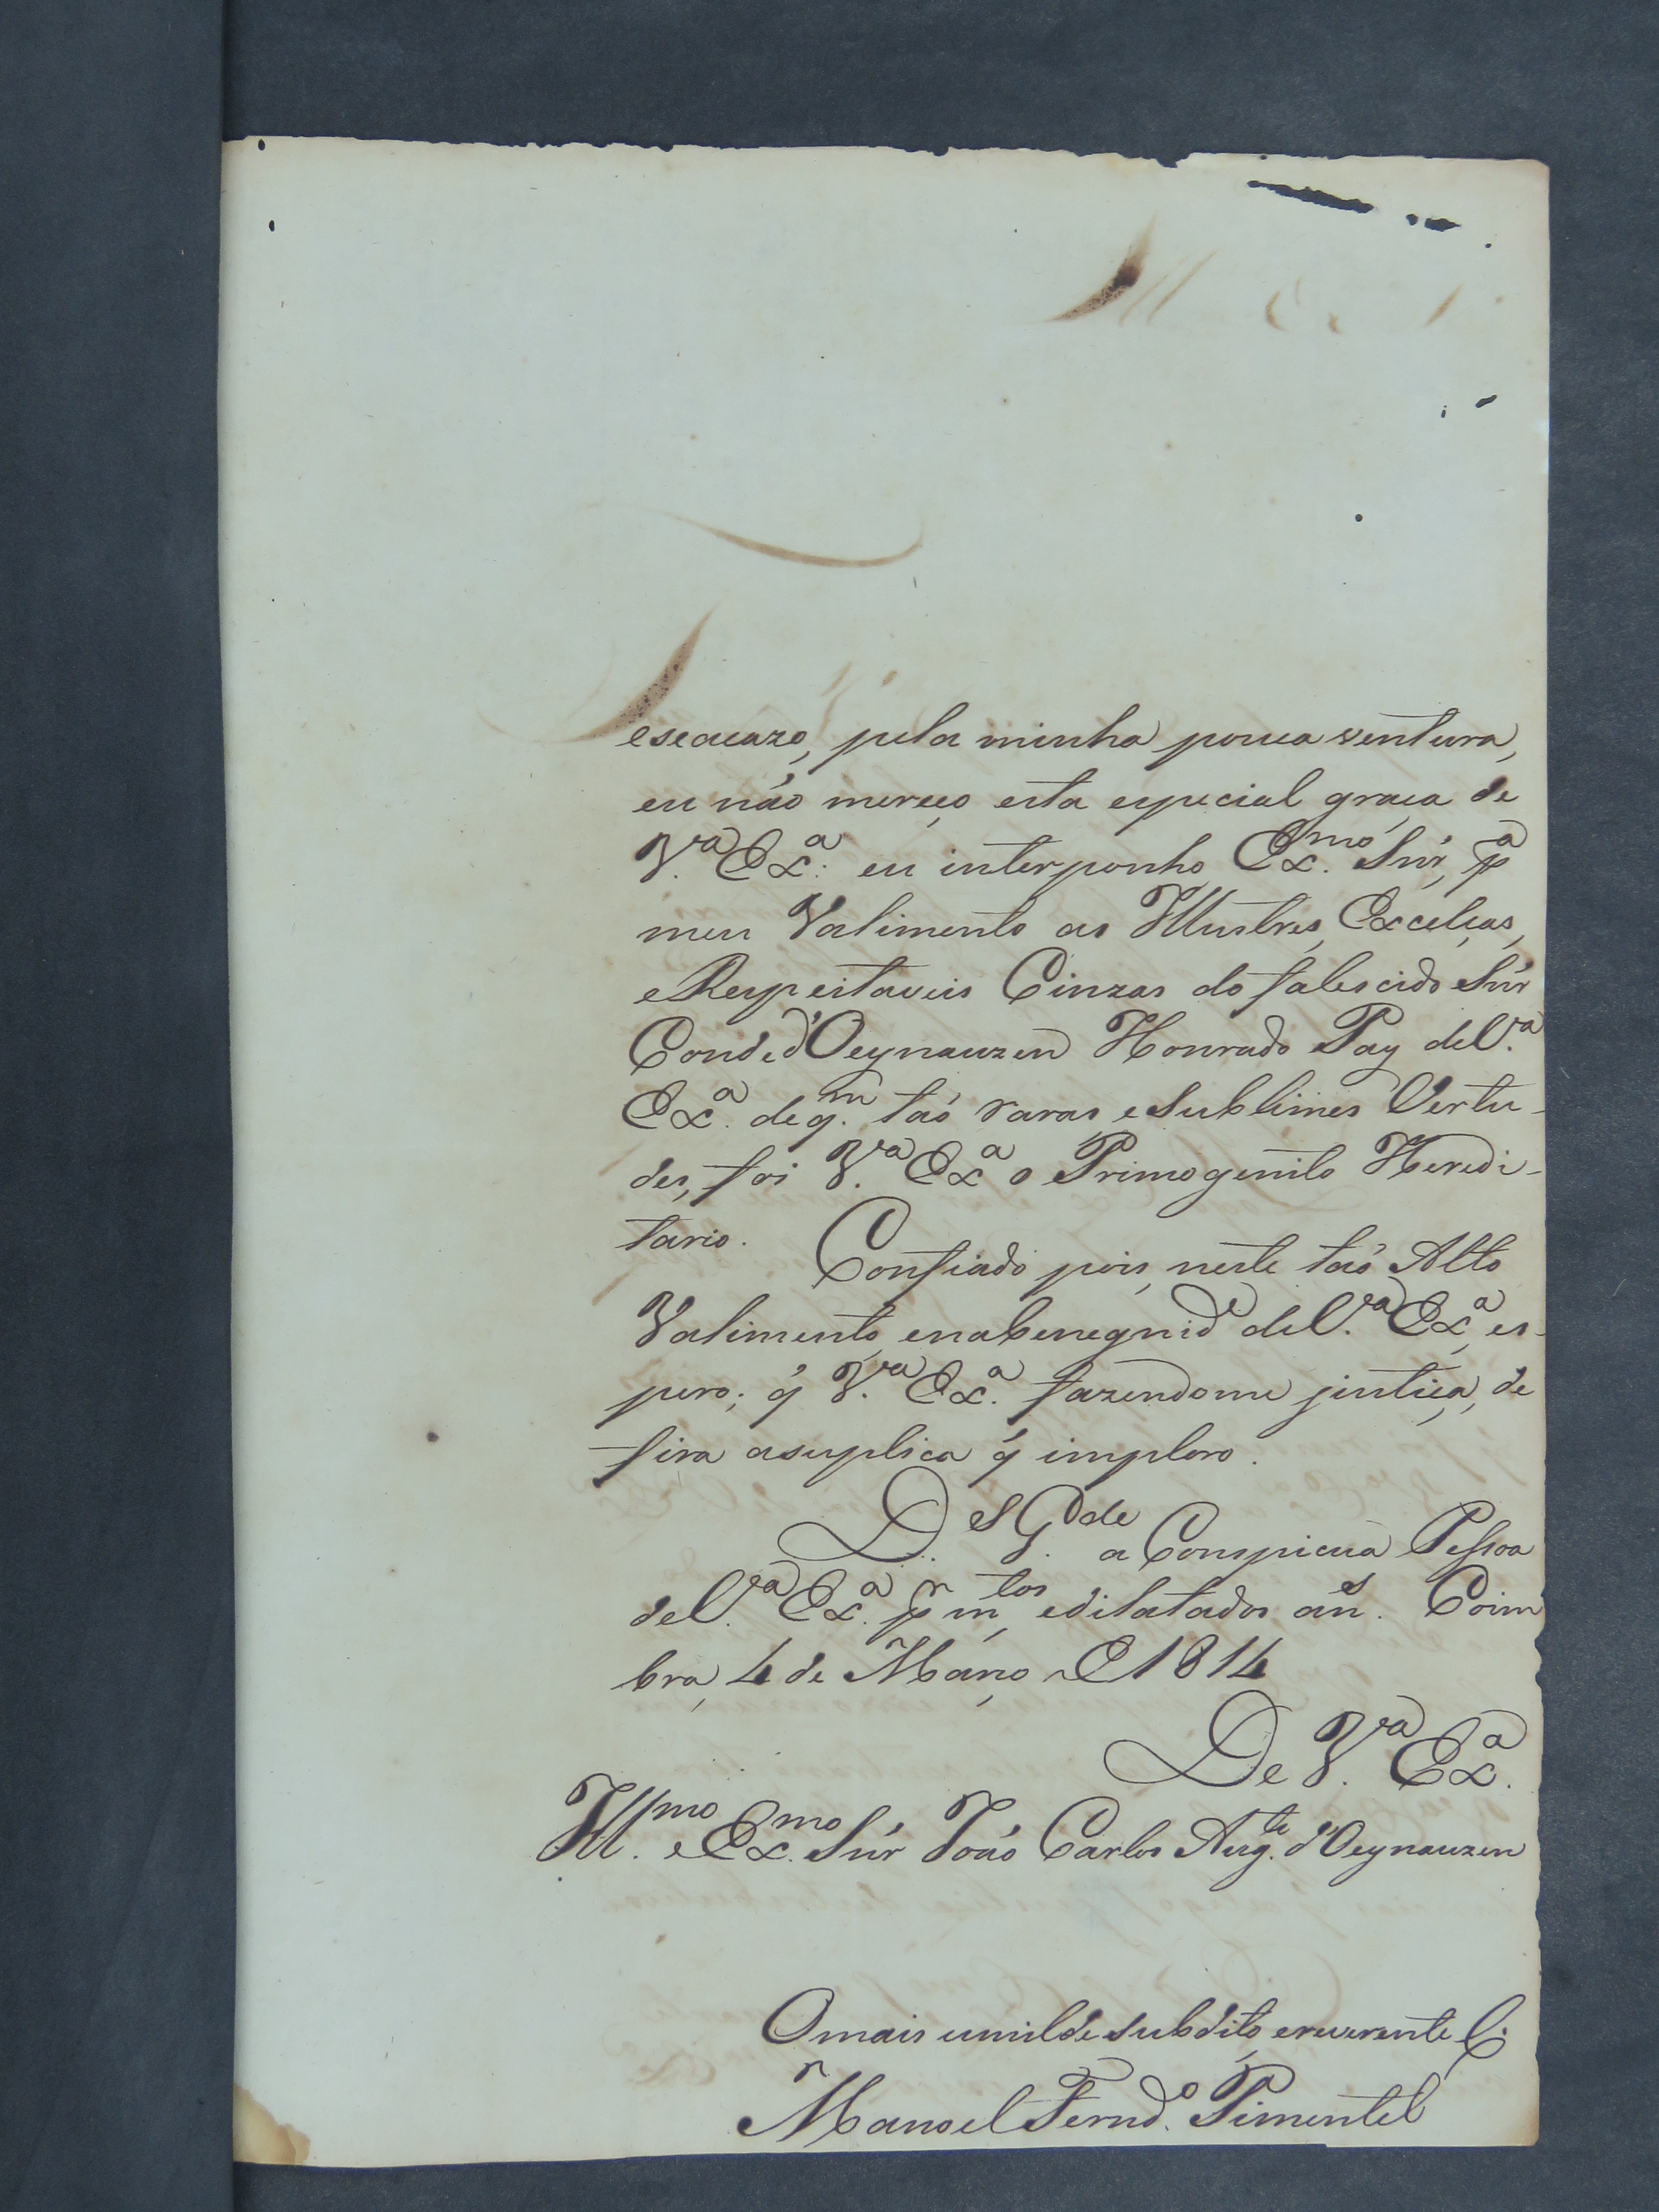 eseacazo, pela minha pouca ventura,
eu náo mereço esta especial graça de
V.ra Ex.a: eu interponho Ex.mo Snr, pa
meu Valimento as Illustres, Excelças,
e Respeitaveis Cinzas do falescido Snr
Conde d'Oeynauzen Honrado Pay de V.ra
Ex.a de q.m táo raras, e Sublimes Vertu-
des, foi V.ra Ex.a o Primogenito Heredi-
tario.
Confiado pois, neste táo Alto
Valimento, enabenegnide de V.ra Ex.a, es-
pero; q̃ V.ra Ex.a fazendome justiça, de
fira asuplica q̃ imploro.
D.s G.de a Conspicua Pessoa
de V.ra Ex.a pr m.tos, e dilatados an.s Coim
bra, 4 de Março de 1814
De V.ra Ex.a
Ill.mo e Ex.mo Snr Joáo Carlos Aug.to d'Oeynauzen
Omais umilde subdito, ereverente C.
Manoel Fernd.o Pimentel